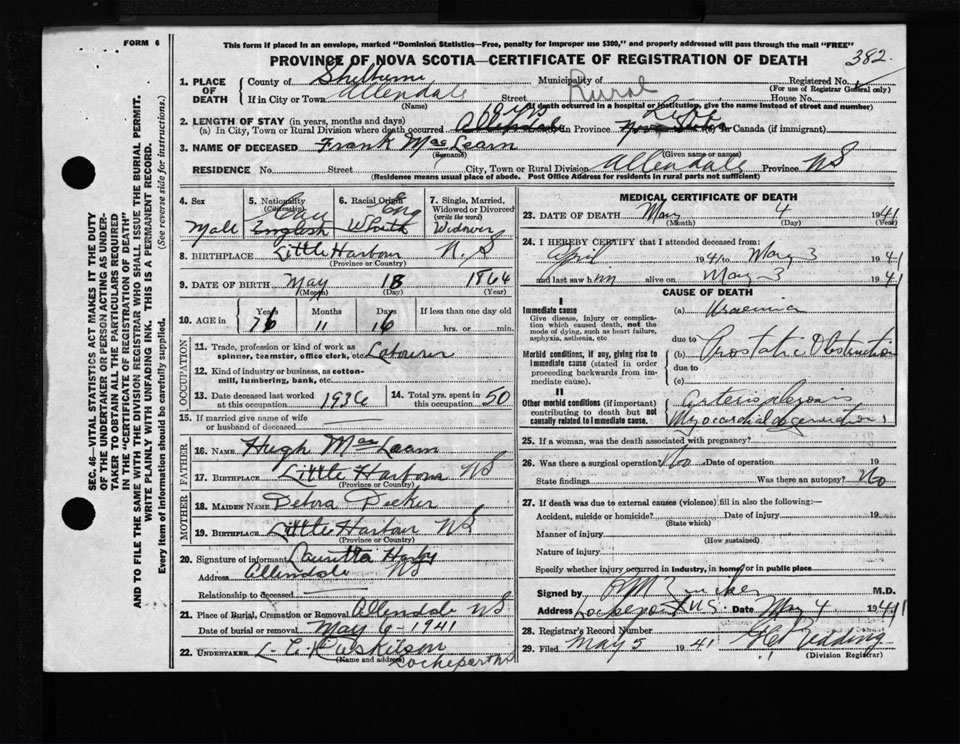 FORM 6
This form if placed in an envelope, marked "Dominion Statistics—Free, penalty for improper use $300," and properly addressed will pass through the mail "FREE"
PROVINCE OF NOVA SCOTIA—CERTIFICATE OF REGISTRATION OF DEATH
382.
SEC. 46—VITAL STATISTICS ACT MAKES IT THE DUTY
OF THE UNDERTAKER OR PERSON ACTING AS UNDER-
TAKER TO OBTAIN ALL THE PARTICULARS REQUIRED
IN THE "CERTIFICATE OF REGISTRATION OF DEATH"
AND TO FILE THE SAME WITH THE DIVISION REGISTRAR WHO SHALL ISSUE THE BURIAL PERMIT.
WRITE PLAINLY WITH UNFADING INK. THIS IS A PERMANENT RECORD.
Every item of information should be carefully supplied. (See reverse side for instructions.)
1. PLACE OF DEATH
County of Shelburne Municipality of Registered No.
(For use of Registrar General only)
If in City or Town Allendale Street Rural House No.
(Name) (If death occurred in a hospital or institution, give the name instead of street and number)
2. LENGTH OF STAY (in years, months and days) 60 yrs Life
(a) In City, Town or Rural Division where death occurred Allendale in Province Nova Scotia (c) in Canada (if immigrant)
3. NAME OF DECEASED Frank MacLearn
(Surname) (Given name or names)
RESIDENCE No. Street City, Town or Rural Division Allendale Province NS
(Residence means usual place of abode. Post Office Address for residents in rural parts not sufficient)
4. Sex
Male
5. Nationality
(Citizenship)
Can
English
6. Racial Origin
Eng
White
7. Single, Married, Widowed or Divorced
(write the word)
Widower
8. BIRTHPLACE Little Harbour N.S
(Province or Country)
9. DATE OF BIRTH May 18 1864
(Month) (Day) (Year)
10. AGE in Years Months Days If less than one day old
76 11 16 hrs. or min.
OCCUPATION
11. Trade, profession or kind of work as spinner, teamster, office clerk, etc. Labourer
12. Kind of industry or business, as cotton-mill, lumbering, bank, etc.
13. Date deceased last worked at this occupation 1936
14. Total yrs. spent in this occupation 50
15. If married give name of wife or husband of deceased
FATHER
16. NAME Hugh MacLearn
17. BIRTHPLACE Little Harbour NS
(Province or Country)
MOTHER
18. MAIDEN NAME Debora Decker
19. BIRTHPLACE Little Harbour NS
(Province or Country)
20. Signature of informant
Address Allendale NS
Relationship to deceased
21. Place of Burial, Cremation or Removal Allendale NS
Date of burial or removal May 6 - 1941
22. UNDERTAKER
(Name and address)
Lockeport NS
MEDICAL CERTIFICATE OF DEATH
23. DATE OF DEATH May 4 1941
(Month) (Day) (Year)
24. I HEREBY CERTIFY that I attended deceased from:
April 1941 to May 3 1941
and last saw him alive on May 3 1941
CAUSE OF DEATH
I
Immediate cause
Give disease, injury or complication which caused death, not the mode of dying, such as heart failure, asphyxia, asthenia, etc
(a) Uraemia
due to
Morbid conditions, if any, giving rise to immediate cause (stated in order proceeding backwards from immediate cause).
(b) Prostatic Obstruction
due to
(c)
II
Other morbid conditions (if important) contributing to death but not causally related to immediate cause.
Arteriosclerosis
Myocardial degeneration
25. If a woman, was the death associated with pregnancy?
26. Was there a surgical operation? No Date of operation 19
State findings Was there an autopsy? No
27. If death was due to external causes (violence) fill in also the following:—
Accident, suicide or homicide? Date of injury 19
(State which)
Manner of injury
(How sustained)
Nature of injury
Specify whether injury occurred in industry, in home, or in public place
Signed by M.D.
Address Lockeport N.S. Date May 4 1941
28. Registrar's Record Number
29. Filed May 5 1941
(Division Registrar)